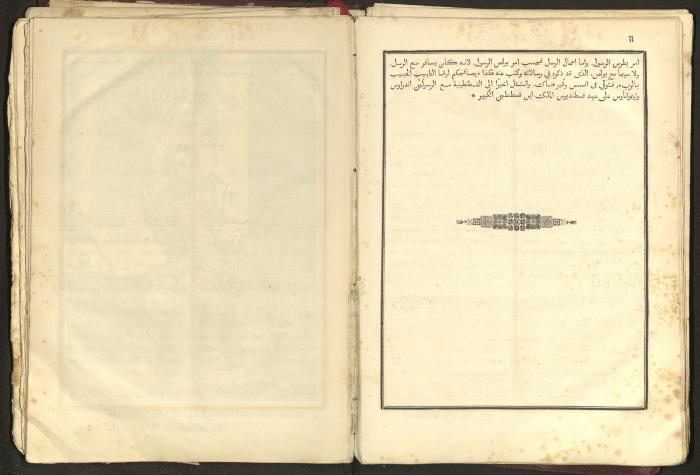 ٦٦
امر بطرس الرسول. واما اعمال الرسل فبحسب امر بولص الرسول. لانه كان يسافر مع الرسل.
ولا سيما مع بولص. الذى قد ذكره في رسالاته وكتب عنه هكذا يصافحكم لوقا الطبيب الحبيب
بالرب. فتوفى في افسس وقبر هناك. وانتقل اخيرًا الى القسطنطينية مع الرسولين اندراوس
وتيموثاوس على عهد قسطنديوس الملك ابن قسطنطين الكبير *